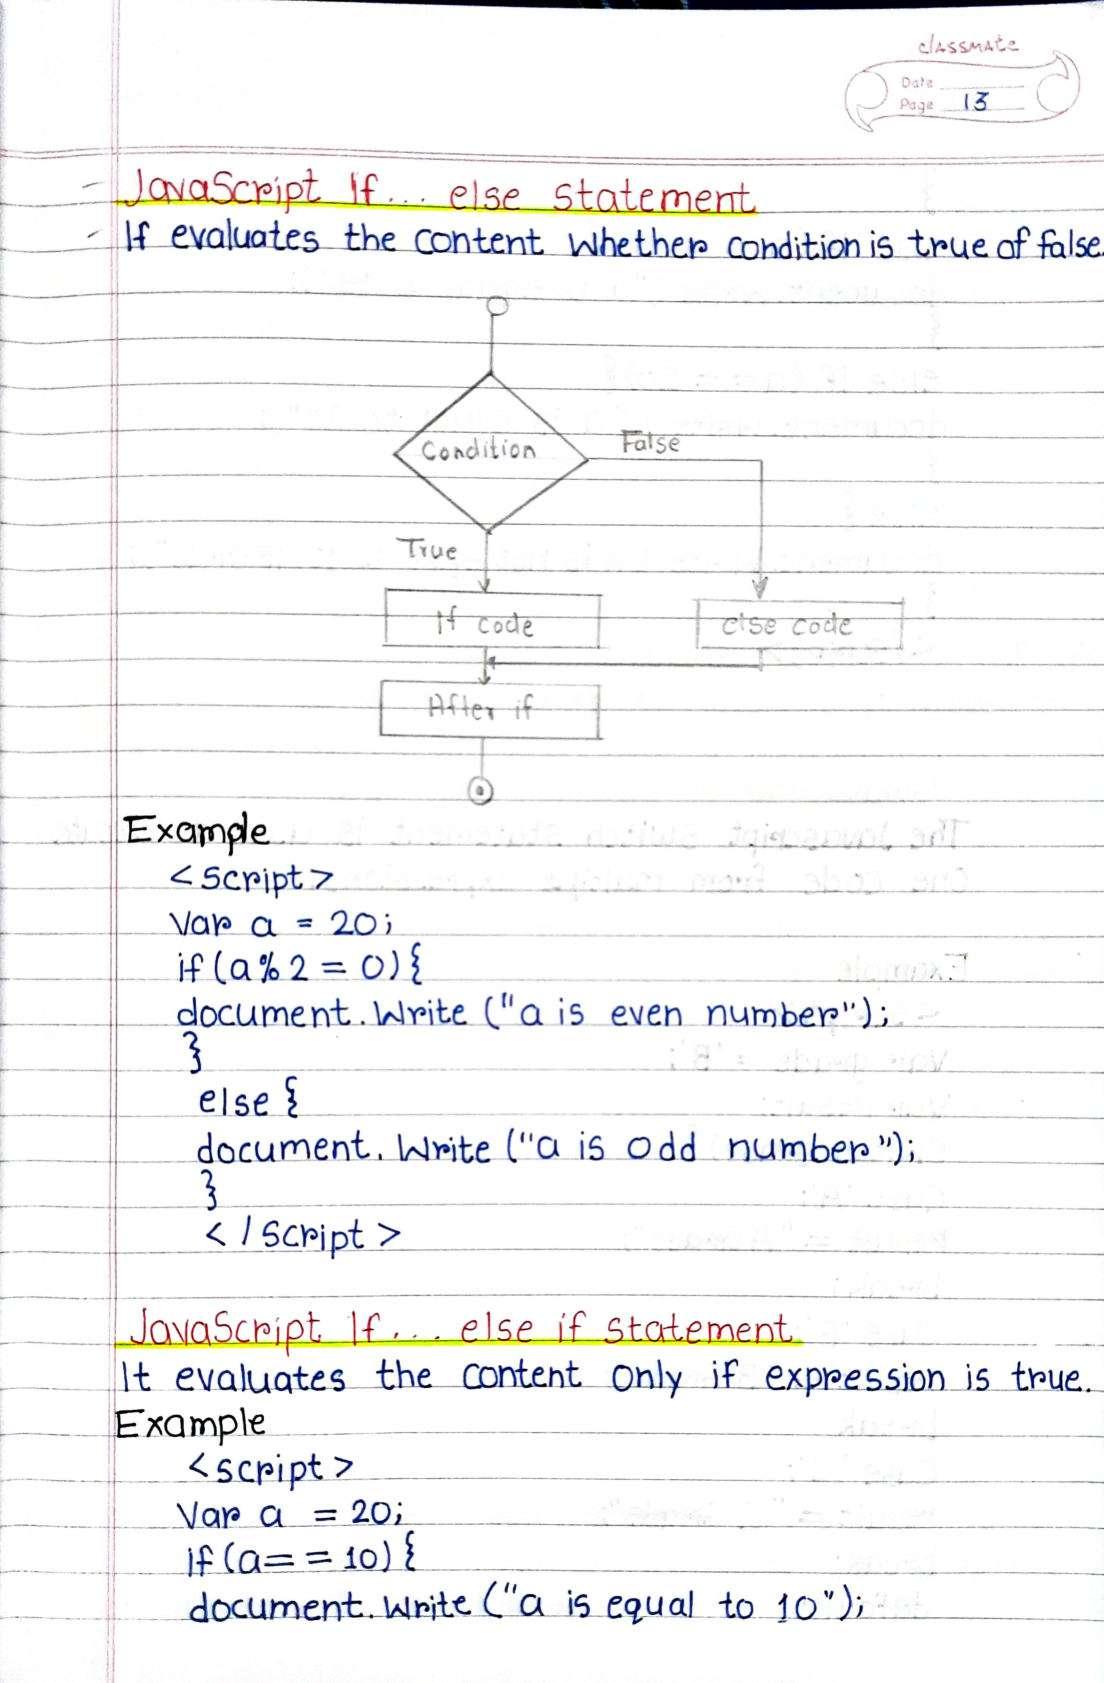 classmate
Date
Page 13
JavaScript If... else statement
If evaluates the content whether condition is true of false.
Condition
False
True
If code
else code
After if
Example
<script>
Var a = 20;
if (a % 2 = 0) {
document.Write ("a is even number");
}
else {
document.Write ("a is odd number");
}
</script>
JavaScript If... else if statement
It evaluates the content only if expression is true.
Example
<script>
Var a = 20;
if (a == 10) {
document.Write ("a is equal to 10");